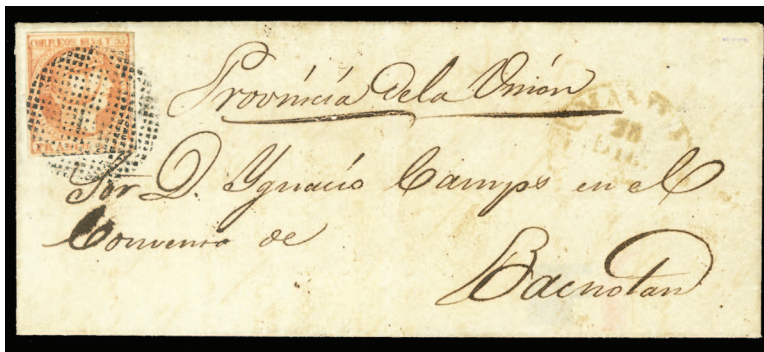 CORREOS 1854 Y 55
FRANCO
Provincia de la Unión
Sor D. Ygnacio Camps en el
Convento de
Bacnotan